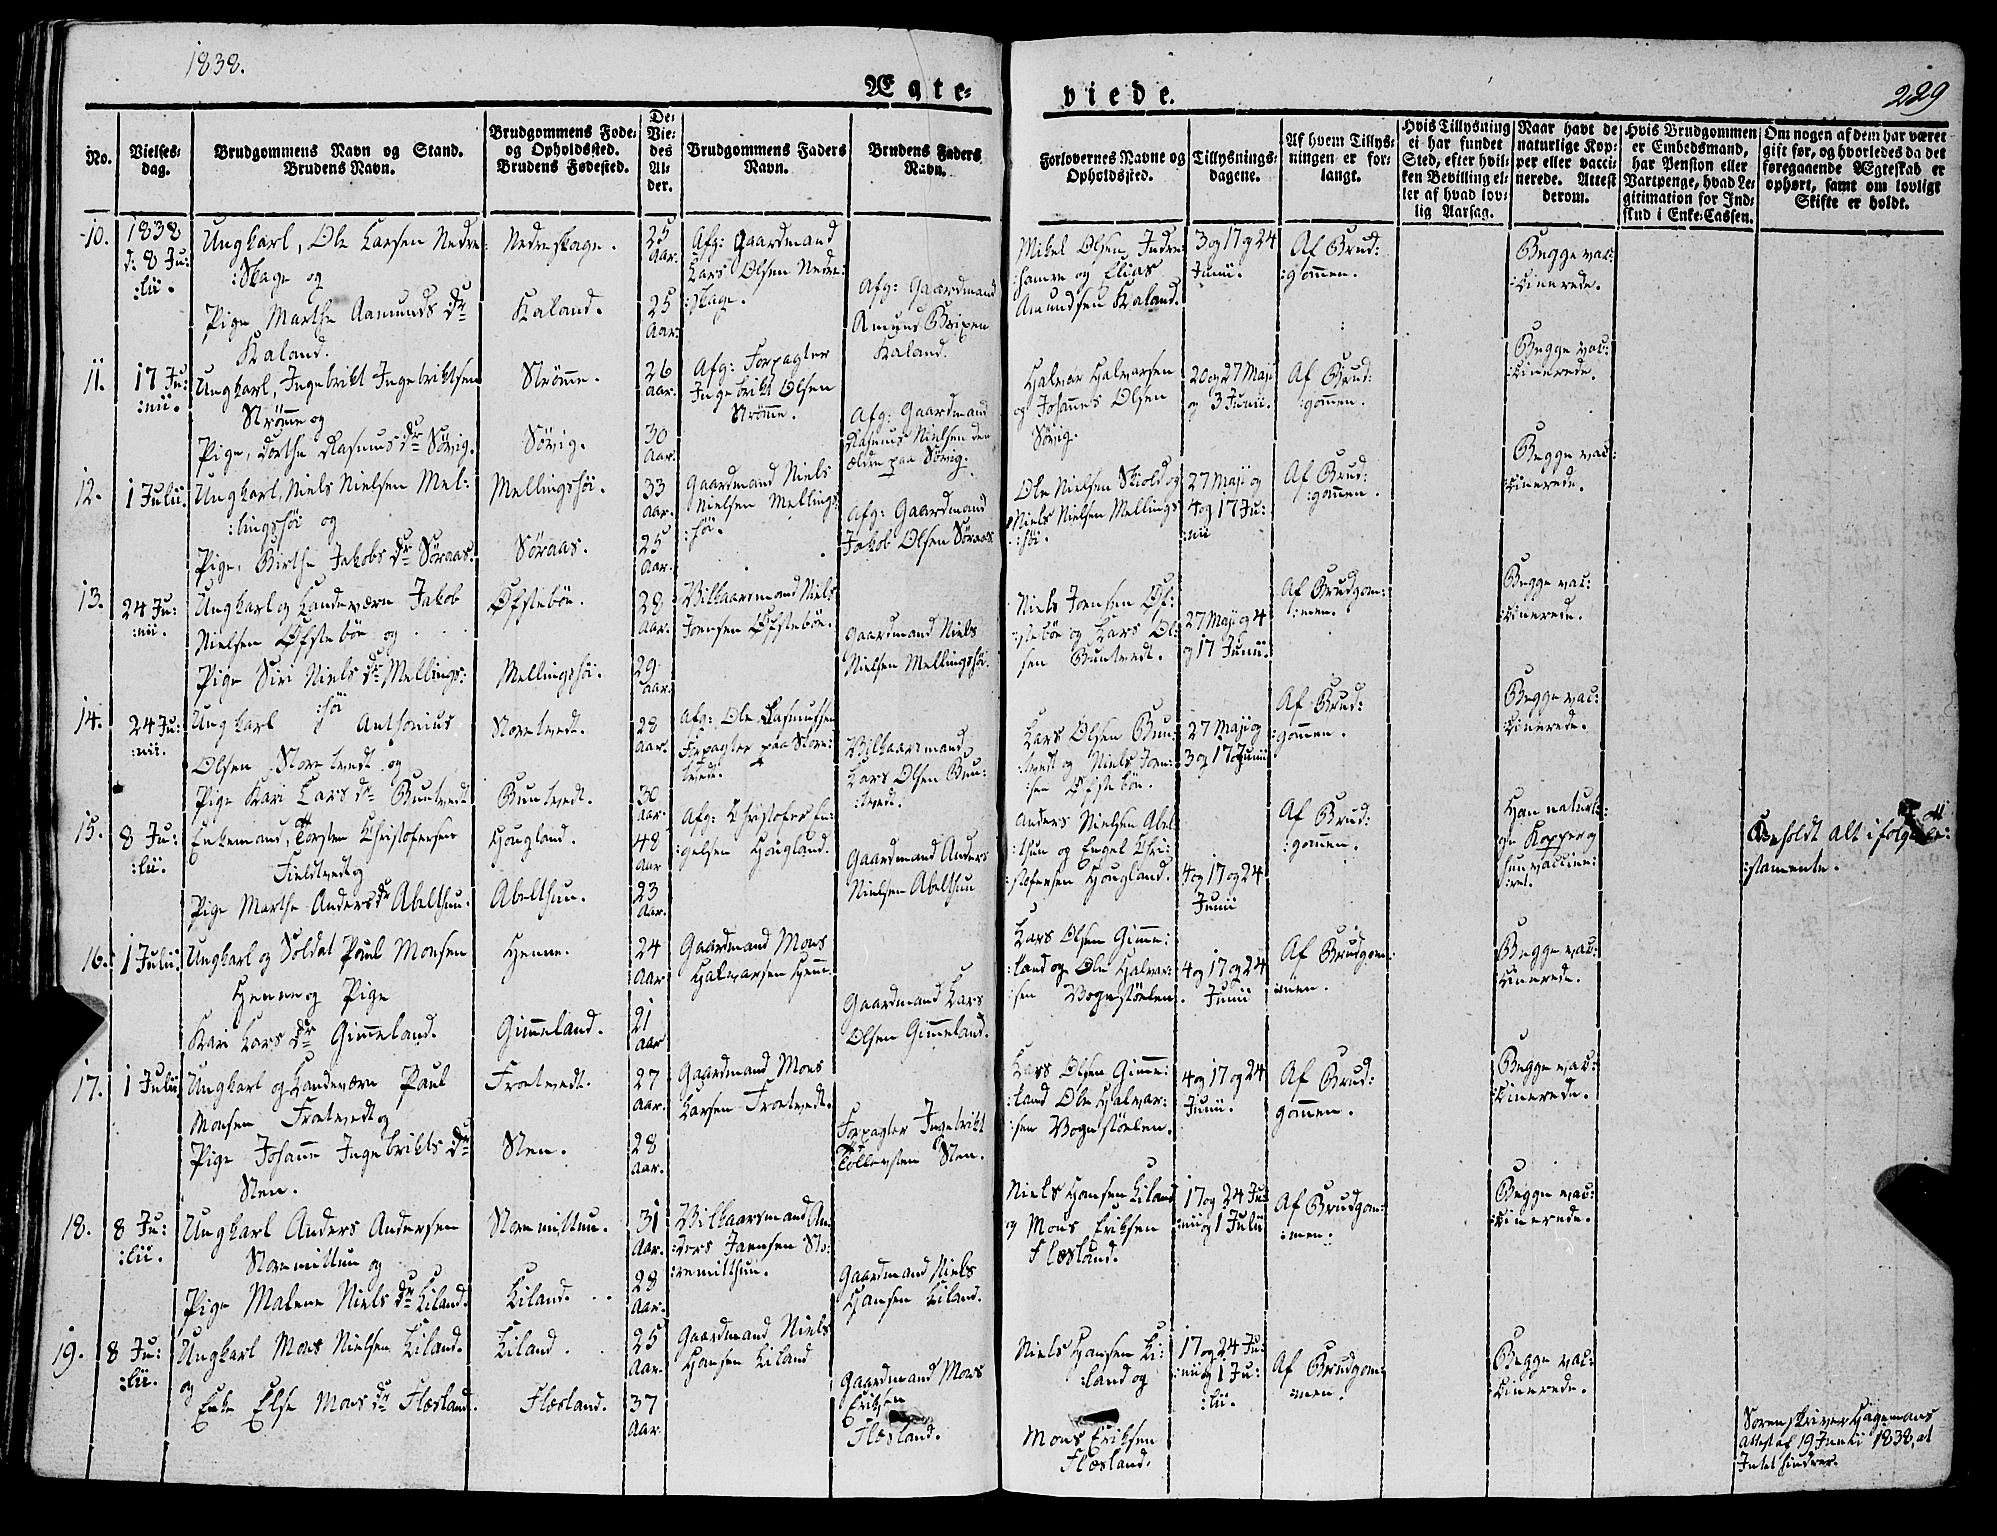 1838.
Ægte-
viede.
229
No.
Vielses-
dag.
Brudgommens Navn og Stand.
Brudens Navn.
Brudgommens Føde-
og Opholdssted.
Brudens Fødested.
De
Vie-
des
Al-
der.
Brudgommens Faders
Navn.
Brudens Faders
Navn.
Forlovernes Navne og
Opholdssted.
Tillysnings-
dagene.
Af hvem Tillys-
ningen er for-
langt.
Hvis Tillysning
ei har fundet
Sted, efter hvil-
ken Bevilling el-
ler af hvad lov-
lig Aarsag.
Naar havt de
naturlige Kop-
per eller vacci-
nerede. Attest
derom.
Hvis Brudgommen
er Embedsmand,
har Pension eller
Vartpenge, hvad Le-
gitimation for Ind-
skud i Enke-Cassen.
Om nogen af dem har været
gift før, og hvorledes da det
foregaaende Ægteskab er
ophørt, samt om lovligt
Skifte er holdt.
10.
1838
d: 8 Ju:
:lii.
Ungkarl, Ole Larsen Nedre:
:Skage og
Pige Marthe Aamunds Dr
Kaland.
Nedreskage.
Kaland.
25
Aar.
25
Aar.
Afg: Gaardmand
Lars Olsen Nedre:
:skage.
Afg: Gaardmand
Amund
Kaland.
Mikel Olsen Indre:
:hamre og Elias
Amundsen Kaland.
3 og 17 og 24
Junii.
Af Brud:
:gomen.
Begge vac:
:cinerede.
11.
17 Ju:
:nii.
Ungkarl, Ingebrikt Ingebriktsen
Strømme og
Pige, Dorthe Rasmus Dr Søvig.
Strømme.
Søvig.
26
Aar.
30
Aar.
Afg: Forpagter
Ingebrikt Olsen
Strømme.
Afg: Gaardmand
Rasmus Nielsen den
ældre paa Søvig.
Halvor Halvorsen
og Johannes Olsen
Søvig.
20 og 27 Maji
og 3 Junii.
Af Brud:
:gomen.
Begge vac:
:cinerede.
12.
1 Julii
Ungkarl, Niels Nielsen Mel:
:lingshøi og
Pige, Birthe Jakobs Dr Søraas.
Mellingshøi.
Søraas.
33
Aar.
25
Aar.
Gaardmand Niels
Nielsen Mellings:
:høi.
Afg: Gaardmand
Jakob Olsen Søraas
Ole Nielsen Skiold og
Niels Nielsen Mellings
:høi.
27 Maji og
4 og 17 Ju:
:nii
Af Brud:
:gomen.
Begge vac:
:cinerede.
13.
24 Ju:
:nii.
Ungkarl og Landeværn Jakob
Nielsen Øfstebøe og
Pige Siri Niels Dr Mellings:
:høi
Øfstebøe.
Mellingshøi.
28
Aar.
29
Aar.
Vilkaarsmand Niels
Joensen Øfstebøe.
Gaardmand Niels
Nielsen Mellingshøi.
Niels Joensen Øf:
:stebøe og Lars Ol:
sen Buntvedt.
27 Maji og 4
og 17 Junii.
Af Brudgom:
:men.
Begge vac:
:cinerede.
14.
24 Ju:
:nii.
Ungkarl Anthonius
Olsen Storetvedt og
Pige Kari Lars Dr Buntvedt
Storetvedt.
Buntvedt.
28
Aar.
30
Aar.
Afg: Ole Rasmussen
Forpagter paa Store:
tvedt.
Vilkaarsmand
Lars Olsen Bun:
:tvedt.
Lars Olsen Bun:
:tvedt og Niels Joen:
:sen Øfstebøe.
27 Maji og
3 og 17 Junii
Af Brud:
:gomen.
Begge vac:
:cinerede.
15.
8 Ju:
:lii.
Enkemand, Torsten Christofersen
Fieldtvedt og
Pige Marthe Anders Dr Abelthun.
Hougland.
Abelthun.
48
Aar
23
Aar.
Afg: Christofer En:
:gelsen Hougland.
Gaardmand Anders
Nielsen Abelthun
Anders Nielsen Abel:
:thun og Engel Chri:
:stofersen Hougland.
4 og 17 og 24
Junii
Af Brud:
:gomen.
Han naturli:
:ge Kopper og
hun vaccine:
:ret.
alt ifølge
:stamente.
16.
1 Julii
Ungkarl og Soldat Poul Monsen
Henne og Pige
Kari Lars Dr Gimmeland.
Henne.
Gimmeland.
24
Aar
21
Aar
Gaardmand Mons
Halvorsen Henne.
Gaardmand Lars
Olsen Gimmeland.
Lars Olsen Gimme:
:land og Ole Halvor:
:sen Vognstølen.
4 og 17 og 24
Junii
Af Brudgom:
:men.
Begge vac:
:cinerede.
17.
1 Julii
Ungkarl og Landeværn Paul
Monsen Froetvedt og
Pige Johanne Ingebrikts Dr
Steen.
Froetvedt.
Steen.
27
Aar.
28
Aar.
Gaardmand Mons
Larsen Froetvedt.
Forpagter Ingebrikt
Tollevsen Steen.
Lars Olsen Gimme:
:land Ole Halvor:
:sen Vognstølen.
4 og 17 og 24
Junii.
Af Brud:
gomen.
Begge vac:
:cinerede.
18.
8 Ju:
:lii.
Ungkarl Anders Andersen
Storemitthun og
Pige Malene Niels Dr Liland.
Storemitthun.
Liland.
31
Aar.
28
Aar.
Vilkaarsmand An:
:ders Joensen Sto:
:remitthun.
Gaardmand Niels
Hansen Liland.
Niels Hansen Liland
og Mons Eriksen
Flæsland.
17 og 24 Ju:
:nii og 1 Julii
Af Brudgom:
:men.
Begge vac:
:cinerede.
19.
8 Ju:
:lii.
Ungkarl Mons Nielsen Liland.
og
Enke Else Mons Dr Flæsland.
Liland.
Flæsland.
25
Aar.
37
Aar.
Gaardmand Niels
Hansen Liland
Gaardmand Mons
Eriksen
Flæsland.
Niels Hansen Li:
:land og
Mons Eriksen
Flæsland.
17 og 24 Ju:
:nii og 1 Ju:
:lii.
Af Brudgom:
:men.
Begge vac:
:cinerede.
Sorenskriver Hagemans
Attest af 19 Junii 1838, at
Intet hindrer.